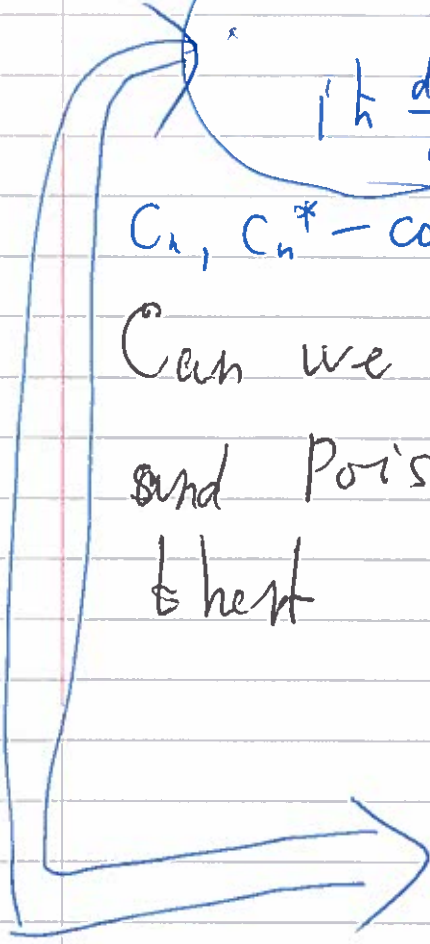 iħ d
Cₙ, Cₙ* – co
Can we
and Pois
that